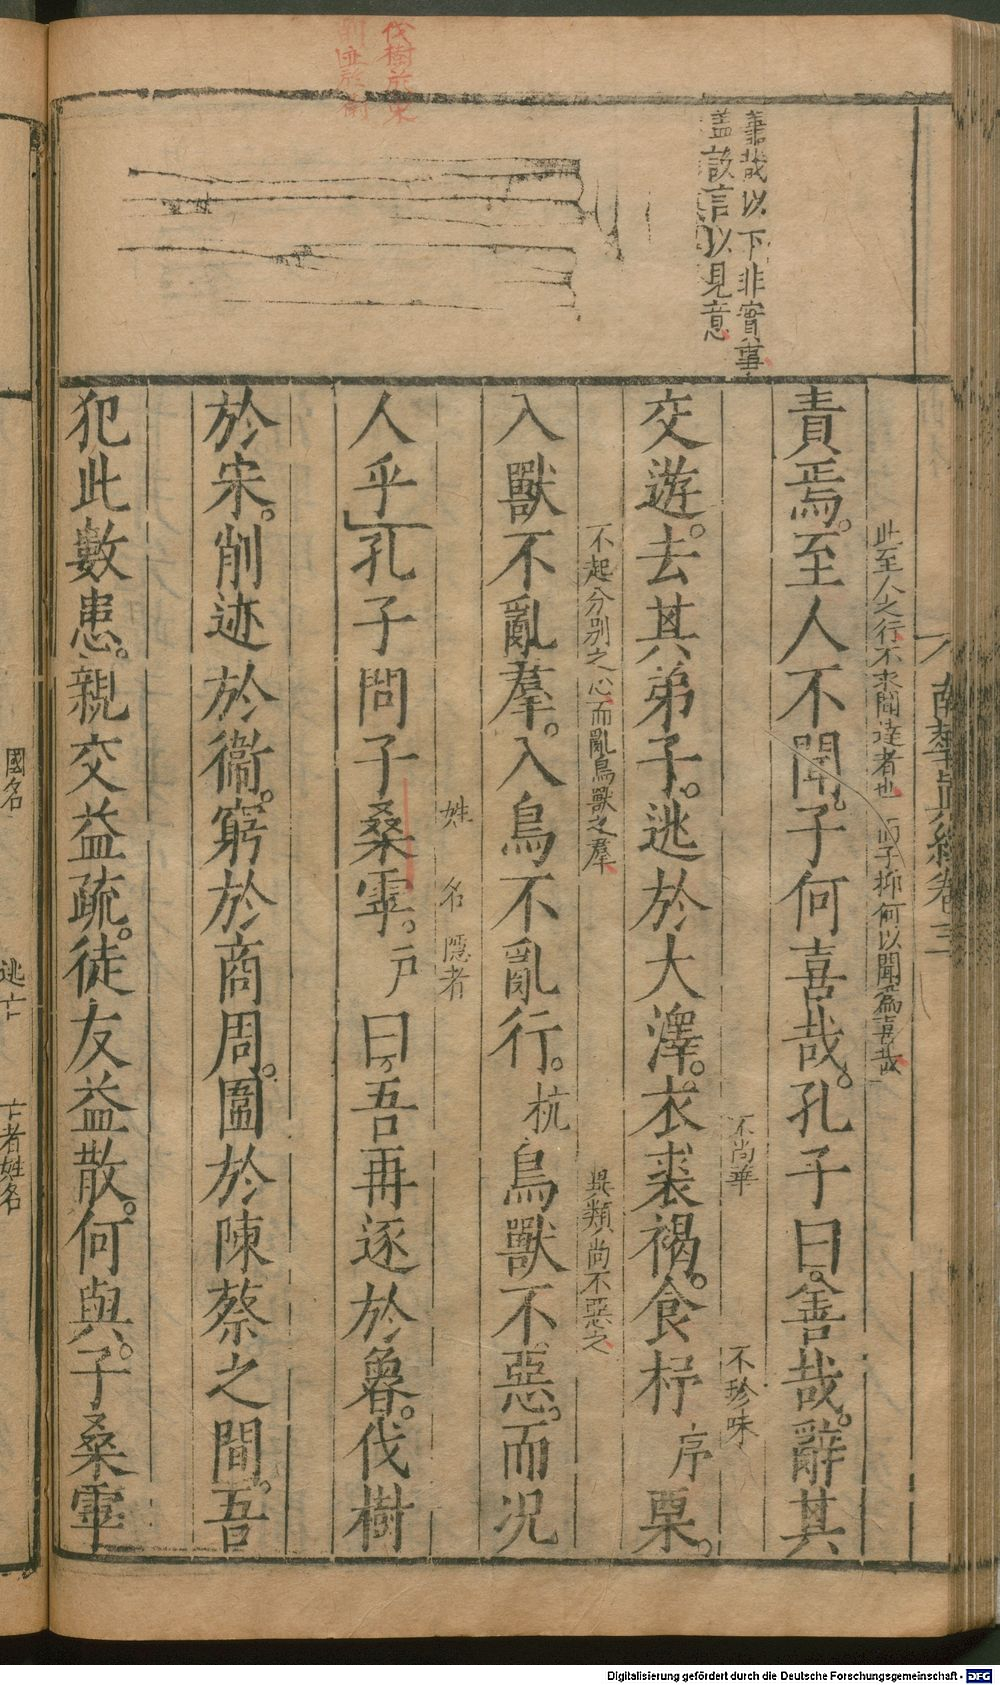 伐樹於宋
削迹於衛
善哉以下非實事
蓋設言以見意
南華真經卷三
此至人之行不求聞達者也 而子抑何以聞為喜哉
責焉至人不聞子何喜哉孔子曰善哉辭其
不尚華 不珍味
交遊去其弟子逃於大澤衣裘褐食杼序栗
不起分別之心而亂鳥獸之羣 異類尚不惡之
入獸不亂羣入鳥不亂行杭鳥獸不惡而況
姓 名 隱者
人乎孔子問子桑雽戶曰吾再逐於魯伐樹
於宋削迹於衞窮於商周圍於陳蔡之間吾
犯此數患親交益疏徒友益散何與子桑雽
國名 逃亡 亡者姓名
Digitalisierung gefördert durch die Deutsche Forschungsgemeinschaft - DFG